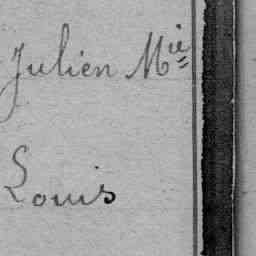 Julien Mie
Louis